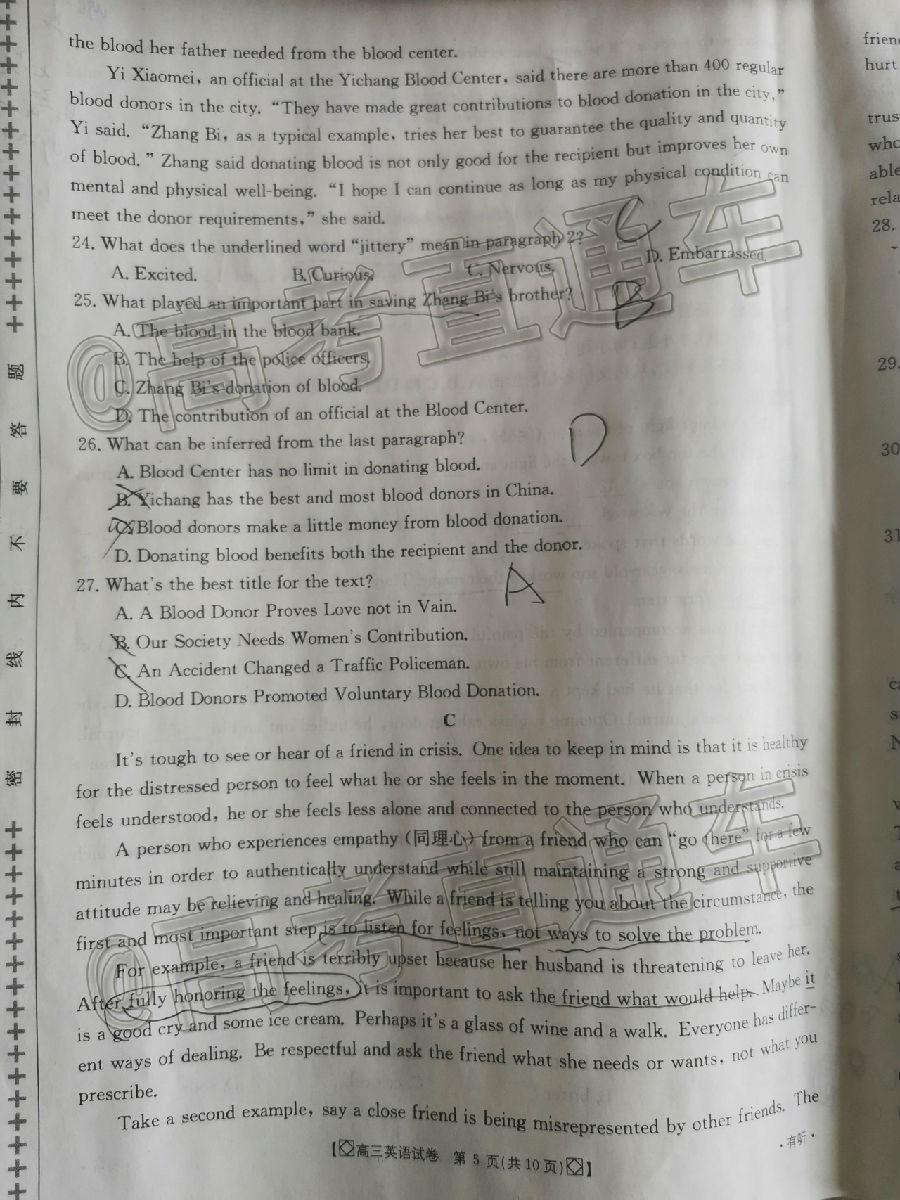 the blood her father needed from the blood center.
Yi Xiaomei, an official at the Yichang Blood Center, said there are more than 400 regular
blood donors in the city. “They have made great contributions to blood donation in the city,”
Yi said. “Zhang Bi, as a typical example, tries her best to guarantee the quality and quantity
of blood.” Zhang said donating blood is not only good for the recipient but improves her own
mental and physical well-being. “I hope I can continue as long as my physical condition can
meet the donor requirements,” she said.
24. What does the underlined word “jittery” mean in paragraph 2? C
A. Excited. B. Curious. C. Nervous. D. Embarrassed.
25. What played an important part in saving Zhang Bi's brother? B
A. The blood in the blood bank.
B. The help of the police officers.
C. Zhang Bi's donation of blood.
D. The contribution of an official at the Blood Center.
26. What can be inferred from the last paragraph? D
A. Blood Center has no limit in donating blood.
B. Yichang has the best and most blood donors in China.
C. Blood donors make a little money from blood donation.
D. Donating blood benefits both the recipient and the donor.
27. What's the best title for the text? A
A. A Blood Donor Proves Love not in Vain.
B. Our Society Needs Women's Contribution.
C. An Accident Changed a Traffic Policeman.
D. Blood Donors Promoted Voluntary Blood Donation.
C
It's tough to see or hear of a friend in crisis. One idea to keep in mind is that it is healthy
for the distressed person to feel what he or she feels in the moment. When a person in crisis
feels understood, he or she feels less alone and connected to the person who understands.
A person who experiences empathy (同理心) from a friend who can “go there” for a few
minutes in order to authentically understand while still maintaining a strong and supportive
attitude may be relieving and healing. While a friend is telling you about the circumstance, the
first and most important step is to listen for feelings, not ways to solve the problem.
For example, a friend is terribly upset because her husband is threatening to leave her.
After fully honoring the feelings, it is important to ask the friend what would help. Maybe it
is a good cry and some ice cream. Perhaps it's a glass of wine and a walk. Everyone has differ-
ent ways of dealing. Be respectful and ask the friend what she needs or wants, not what you
prescribe.
Take a second example, say a close friend is being misrepresented by other friends. The
【高三英语试卷 第 5 页(共 10 页)】
·有听·
密 封 线 内 不 要 答 题
@高考直通车
@高考直通车
frien
hurt
trus
who
able
rela
28.
29.
30
31